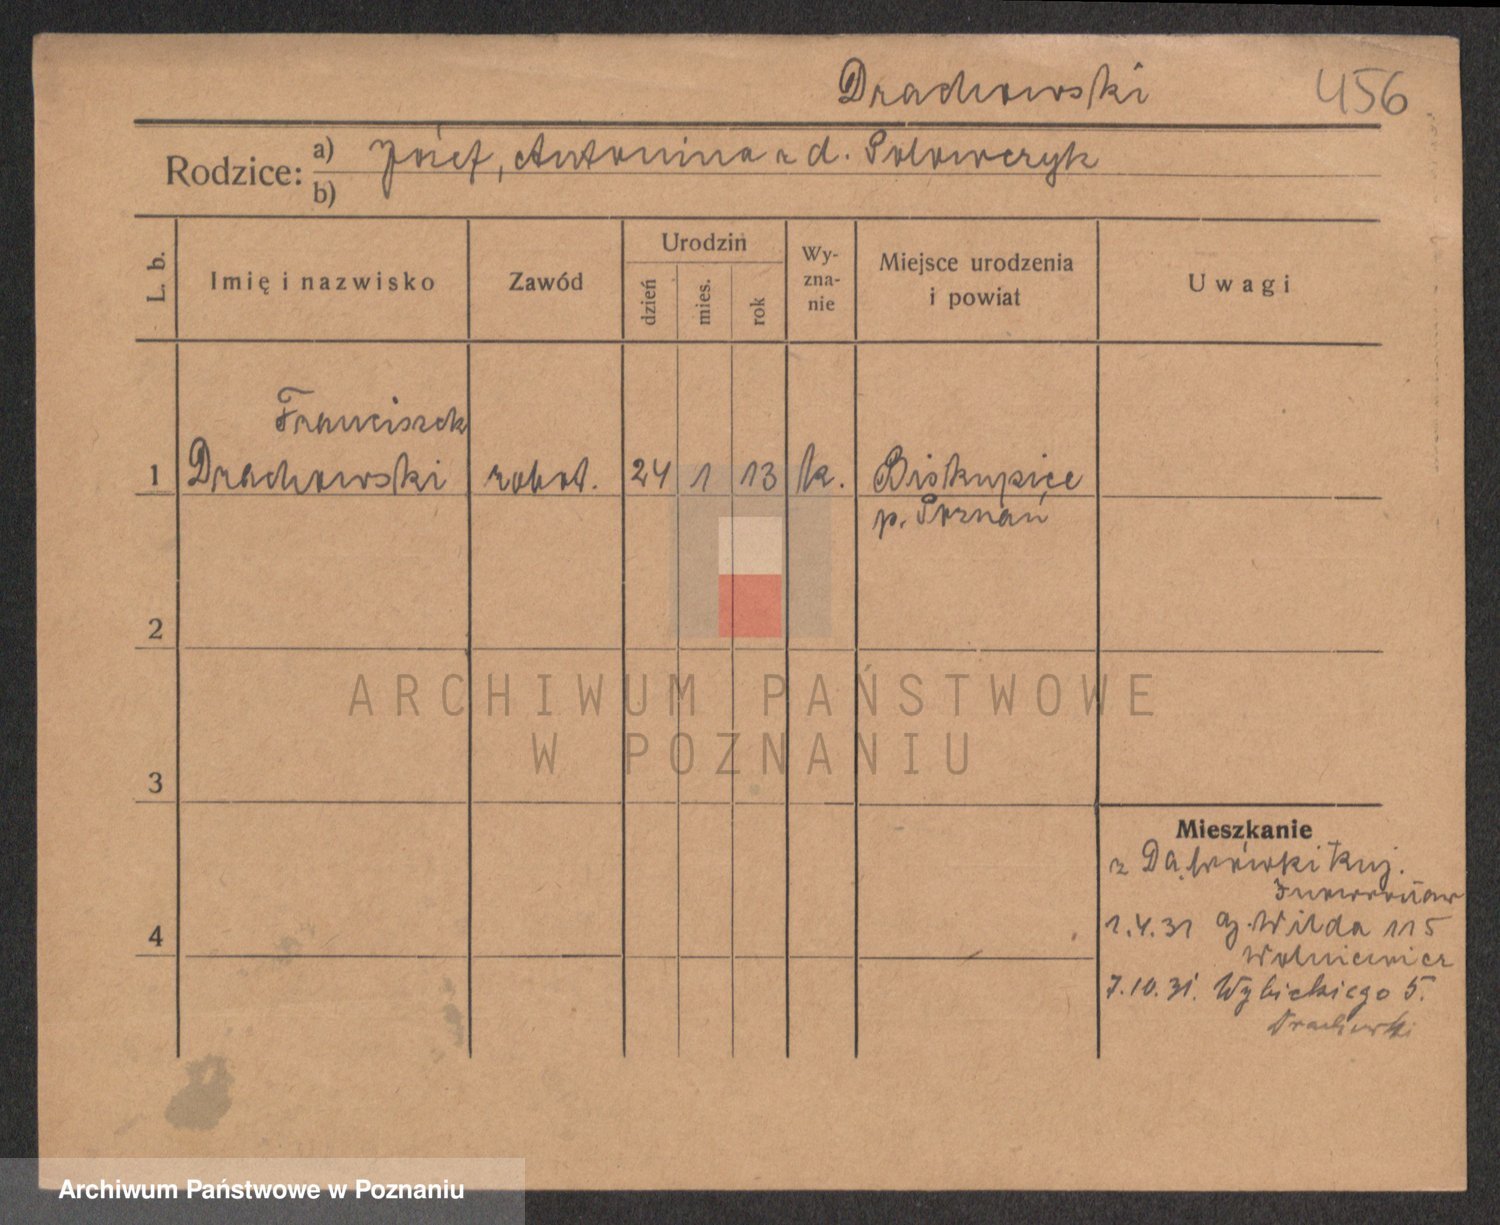 Drachowski 456
Rodzice: a) Józef, Antonina z d. Polowczyk
b)
L. b.
Imię i nazwisko
Zawód
Urodzin
dzień
mies.
rok
Wy-
zna-
nie
Miejsce urodzenia
i powiat
Uwagi
Franciszek
1 Drachowski robot. 24 1 13 k. Biskupice
p. Poznań
2
ARCHIWUM PAŃSTWOWE
W POZNANIU
3
Mieszkanie
z Dąbrówki Kuj.
4
1.4.31 G. Wilda 115
Wolniewicz
7.10.31. Wybickiego 5.
Drachowski
Archiwum Państwowe w Poznaniu